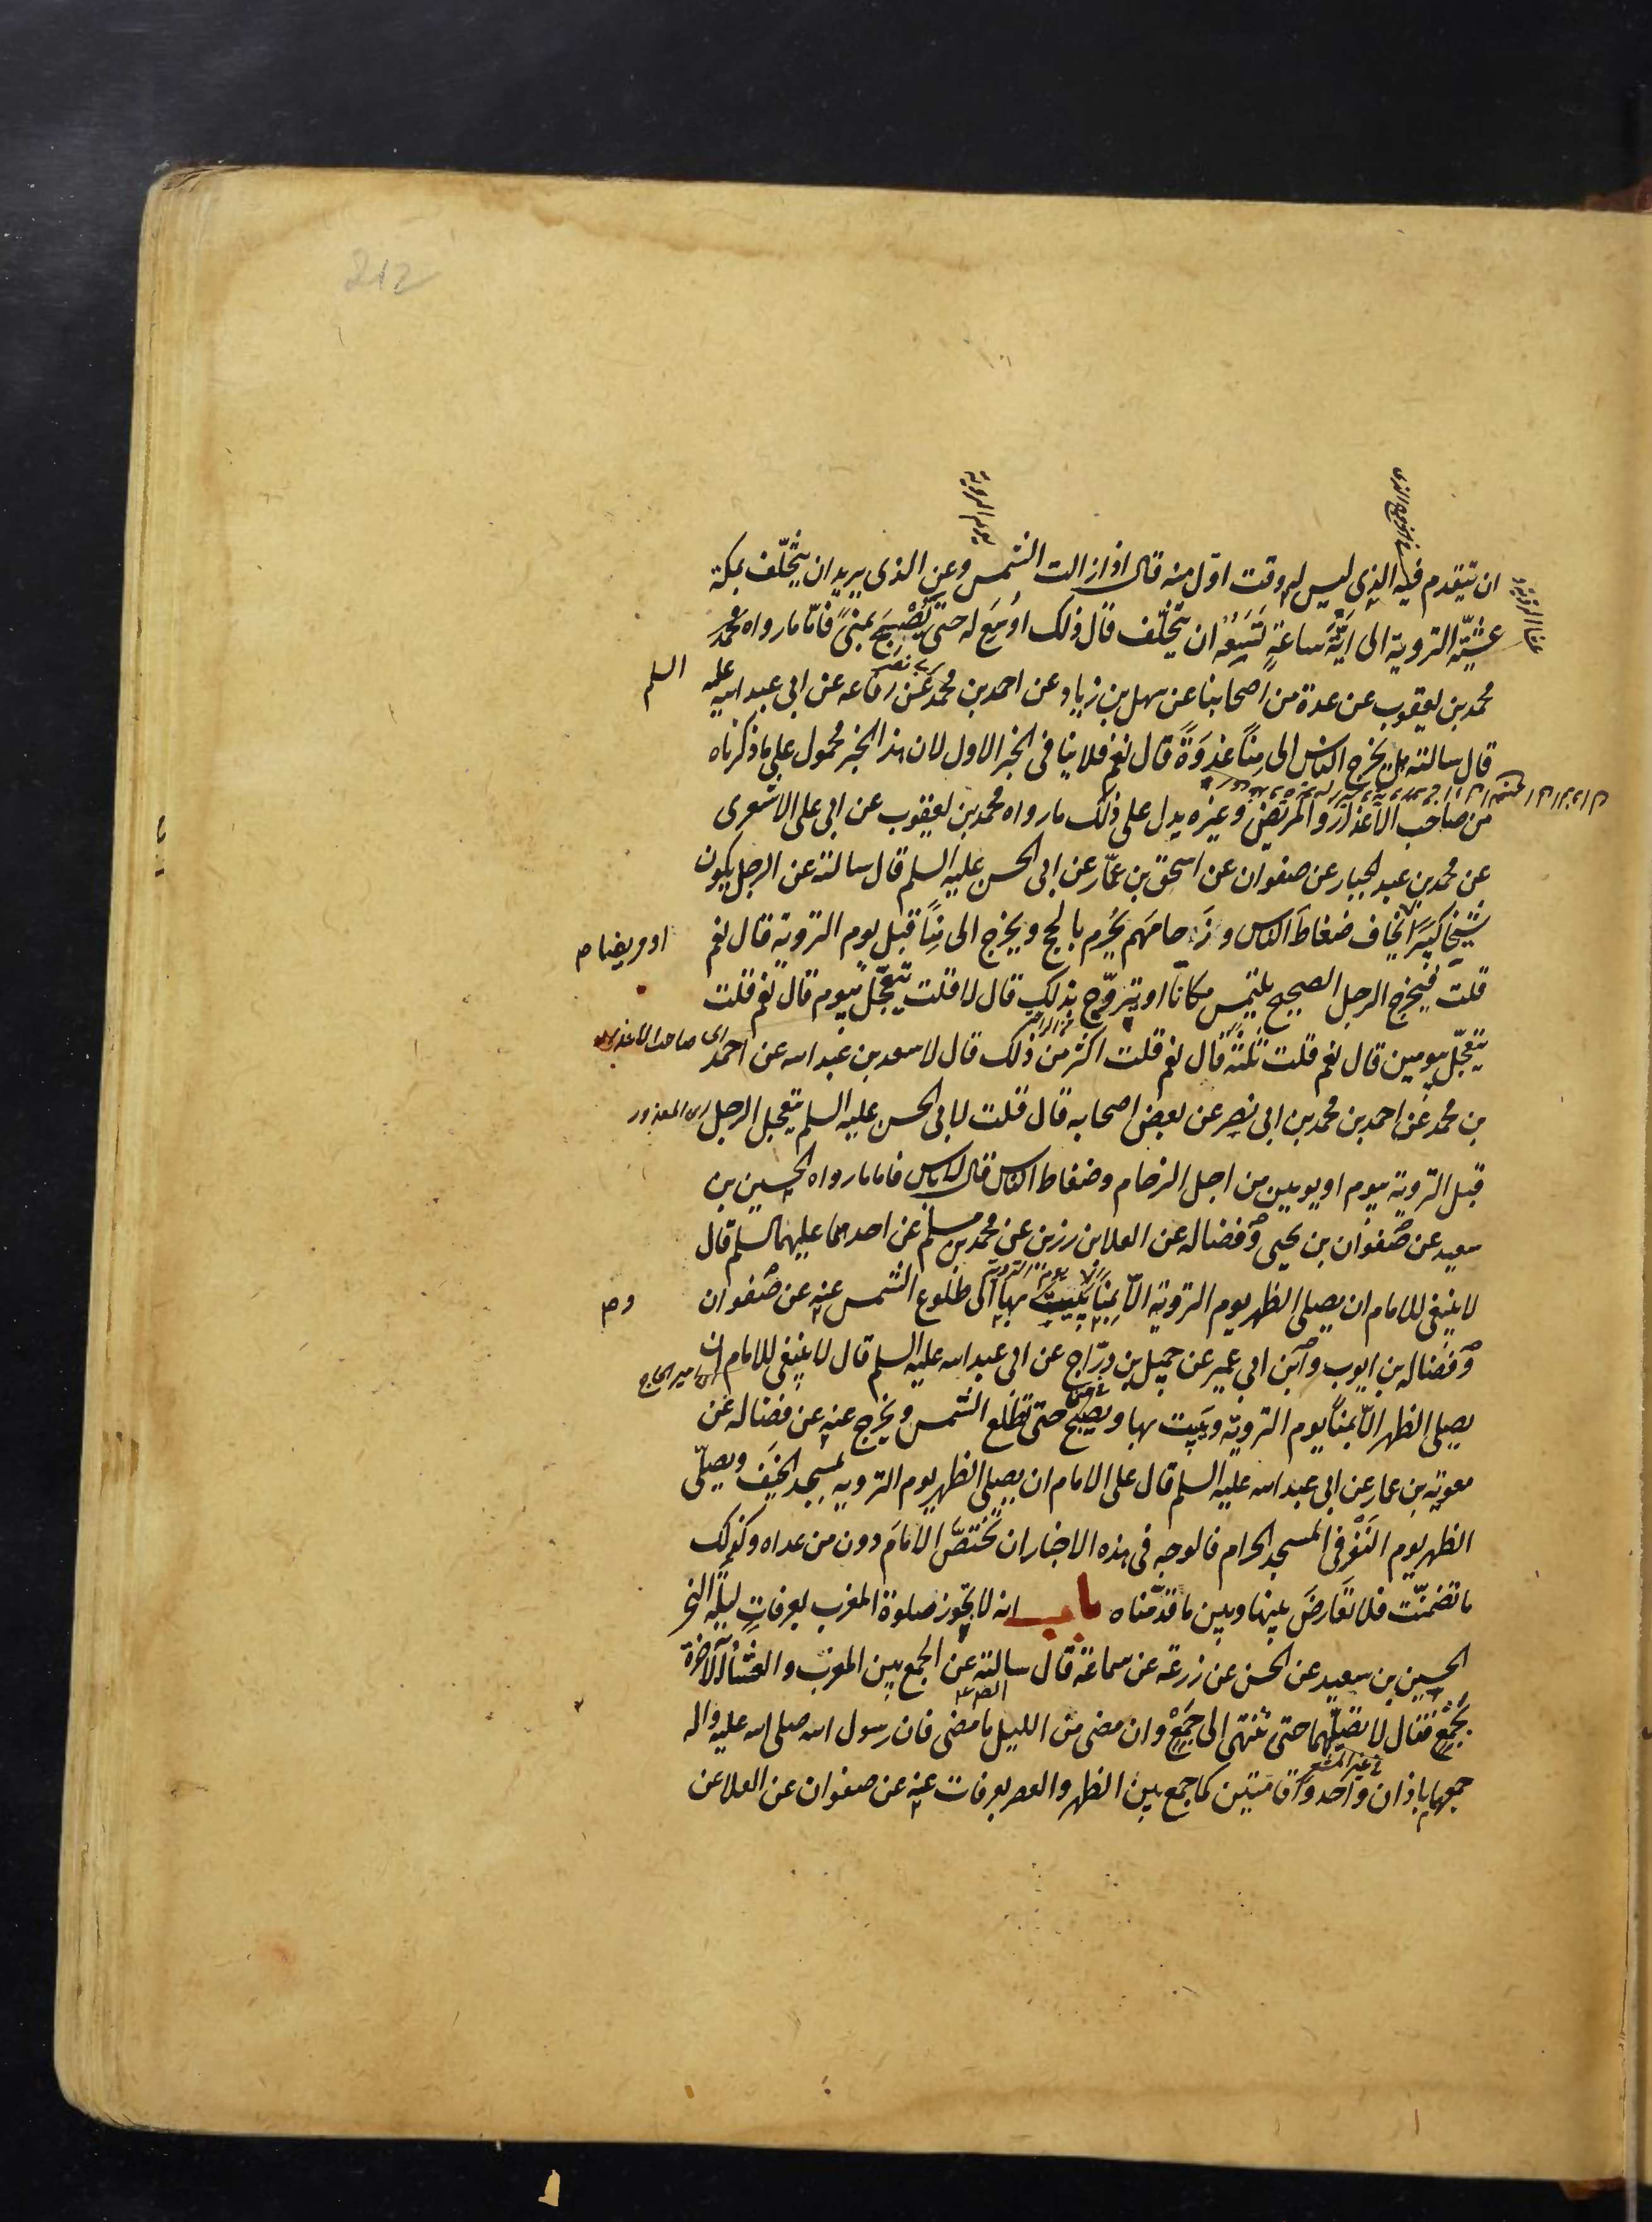 212
ان يتقدم فيه الذى ليس له وقت اول منه قال اذا زالت الشمس وعن الذى يريد ان يتخلف بمكة
عشية التروية الى اية ساعة تسعه ان يتخلف قال ذلك اوسع له حتى يصبح بمنى فاما ما رواه
محمد بن يعقوب عن عدة من اصحابنا عن سهل بن زياد عن احمد بن محمد عن رفاعه عن ابى عبد الله عليه السلم
قال سالته هل يخرج الناس الى منا غدوة قال نعم فلا ينافى الخبر الاول لان هذا الخبر محمول على ما ذكرناه
من صاحب الاعذار والمريض وغيره يدل على ذلك ما رواه محمد بن يعقوب عن ابى على الاشعرى
عن محمد بن عبد الجبار عن صفوان عن اسحق بن عمار عن ابى الحسن عليه السلم قال سالته عن الرجل يكون
شيخا كبيرا يخاف ضغاط الناس وزحامهم يحرم بالحج ويخرج الى منا قبل يوم التروية قال نعم
او مريضا
قلت فيخرج الرجل الصحيح يلتمس مكانا او يتروح بذلك قال لا قلت يتعجل بيوم قال نعم قلت
يتعجل بيومين قال نعم قلت ثلثة قال نعم قلت اكثر من ذلك قال لا سعد بن عبد الله عن احمد
بن محمد عن احمد بن محمد بن ابى نصر عن بعض اصحابه قال قلت لابى الحسن عليه السلم يتعجل الرجل
اى المعذور
قبل التروية بيوم او يومين من اجل الزحام وضغاط الناس قال لا باس فاما ما رواه الحسين بن
سعيد عن صفوان بن يحيى وفضاله عن العلا بن رزين عن محمد بن مسلم عن احدهما عليهما السلم قال
لا ينبغى للامام ان يصلى الظهر يوم التروية الا بمنا يبيت بها الى طلوع الشمس عنه عن صفوان
وفضاله بن ايوب وابن ابى عمير عن جميل بن دراج عن ابى عبد الله عليه السلم قال لا ينبغى للامام ان
يصلى الظهر الا بمنا يوم التروية ويبيت بها ويصبح حتى تطلع الشمس ويخرج عنه عن فضاله عن
معوية بن عمار عن ابى عبد الله عليه السلم قال على الامام ان يصلى الظهر يوم التروية بمسجد الخيف ويصلى
الظهر يوم النفر فى المسجد الحرام فالوجه فى هذه الاخبار ان تختص الامام دون من عداه وكذلك
ما تضمنت فلا تعارض بينها وبين ما قدمناه باب انه لا يجوز صلوة المغرب بعرفات ليلة النحر
الحسين بن سعيد عن الحسن عن زرعة عن سماعة قال سالته عن الجمع بين المغرب والعشاء الاخرة
بجمع فقال لا تصليهما حتى تنتهى الى جمع وان مضى من الليل ما مضى فان رسول الله صلى الله عليه واله
جمعهما باذان واحد واقامتين كما جمع بين الظهر والعصر بعرفات عنه عن صفوان عن العلا عن